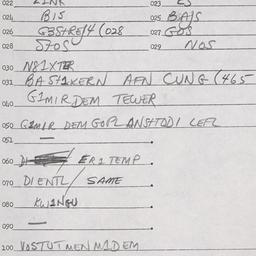 022 LINK 023 LJ
024 BIS 025 BAJS
026 G3STRE14 (028 027 GOS
028 STOS 029 NOS
030 N81XTER
031 BASTIXERN AFN CUNG (465
040 G1MIR DEM TEWER
050 G1MIR DEM GOPL ANSHTODI LEFL
051 —
060 ER1 TEMP
070 DIENTL/ SAME
080 KWINGU
090 —
100 VOSTUTMENMIDEM